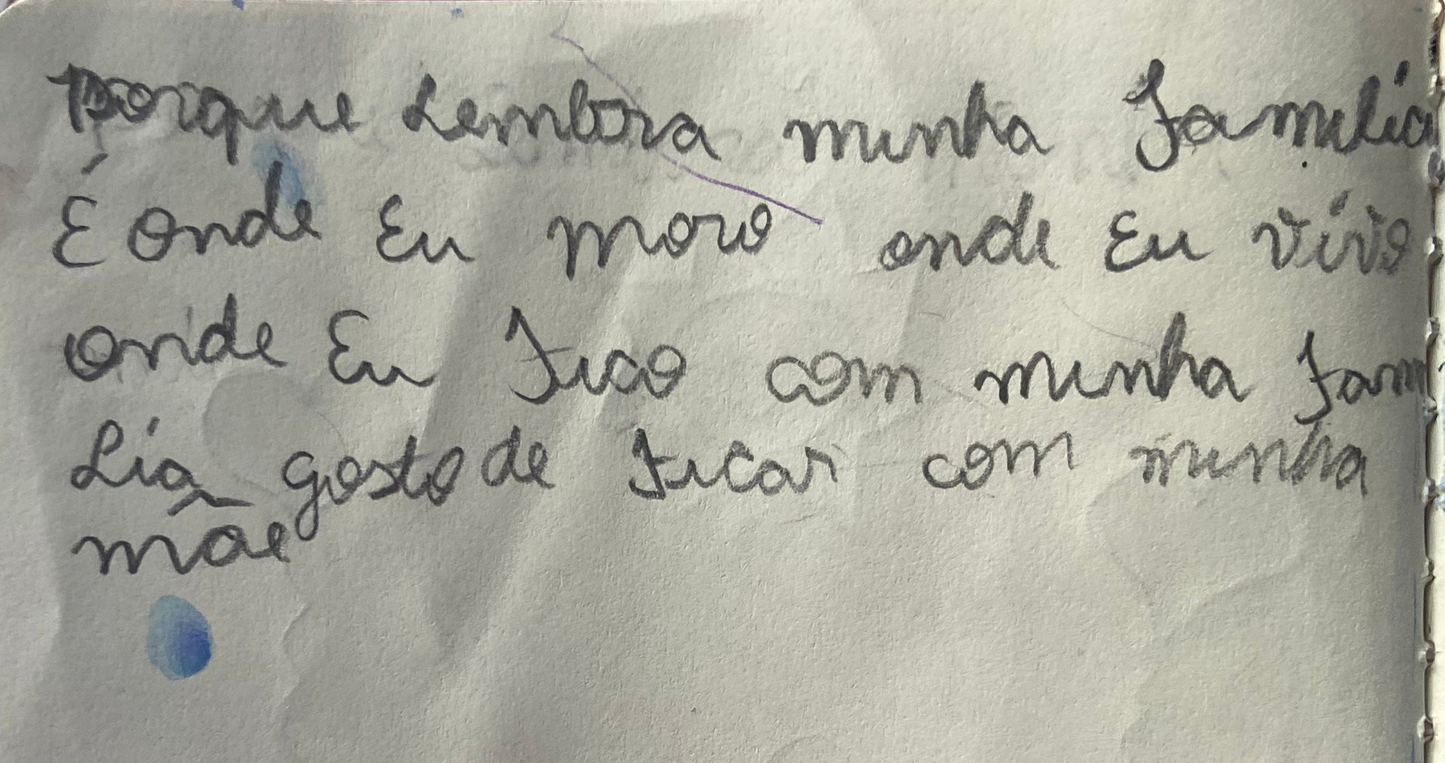 Porque Lembra minha família
É onde Eu moro onde Eu vivo
onde Eu Fico com minha fam
Lia gosto de ficar com minha
mãe